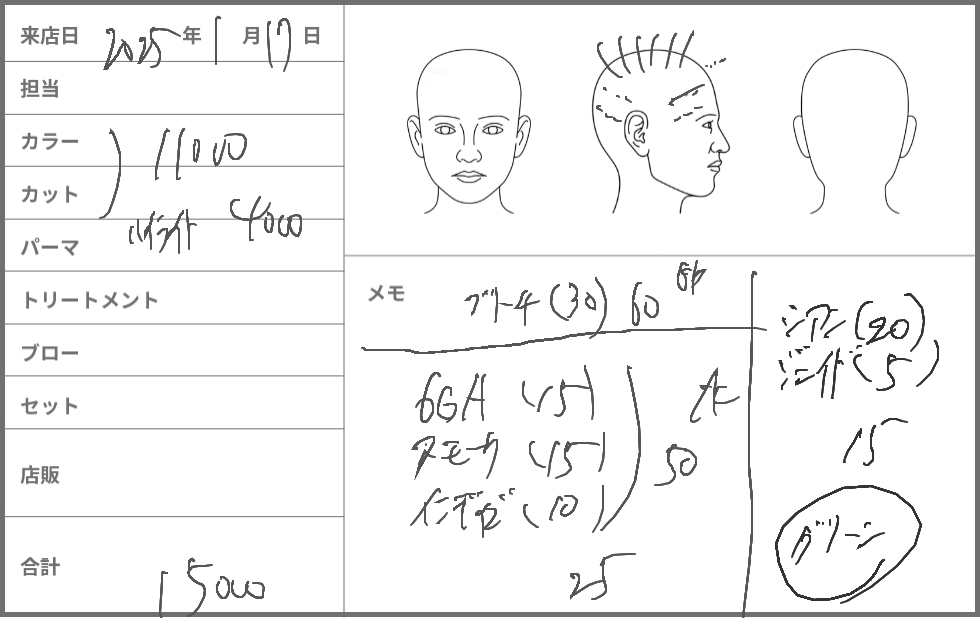 来店日 2025年1月17日
担当
カラー
カット
11000
パーマ
ハイライト 4000
トリートメント
ブロー
セット
店販
合計
15000
メモ
ブリーチ(30) 60
6GA (15)
スモーク (15)
インディゴ (10)
50
25
シアン(20)
ジェイド(5)
15
グリーン